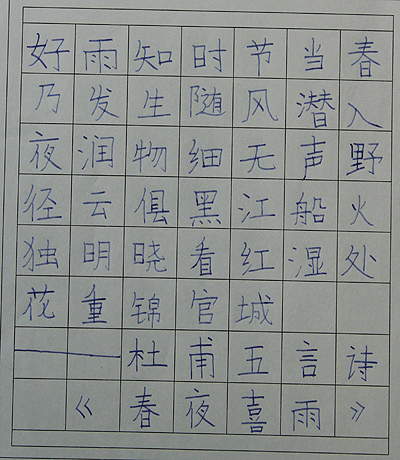 好雨知时节当春
乃发生随风潜入
夜润物细无声野
径云俱黑江船火
独明晓看红湿处
花重锦官城
——杜甫五言诗
《春夜喜雨》